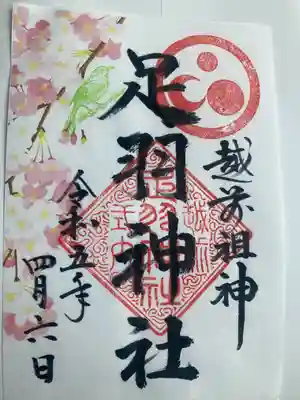 越前祖神
足羽神社
令和五年
四月六日